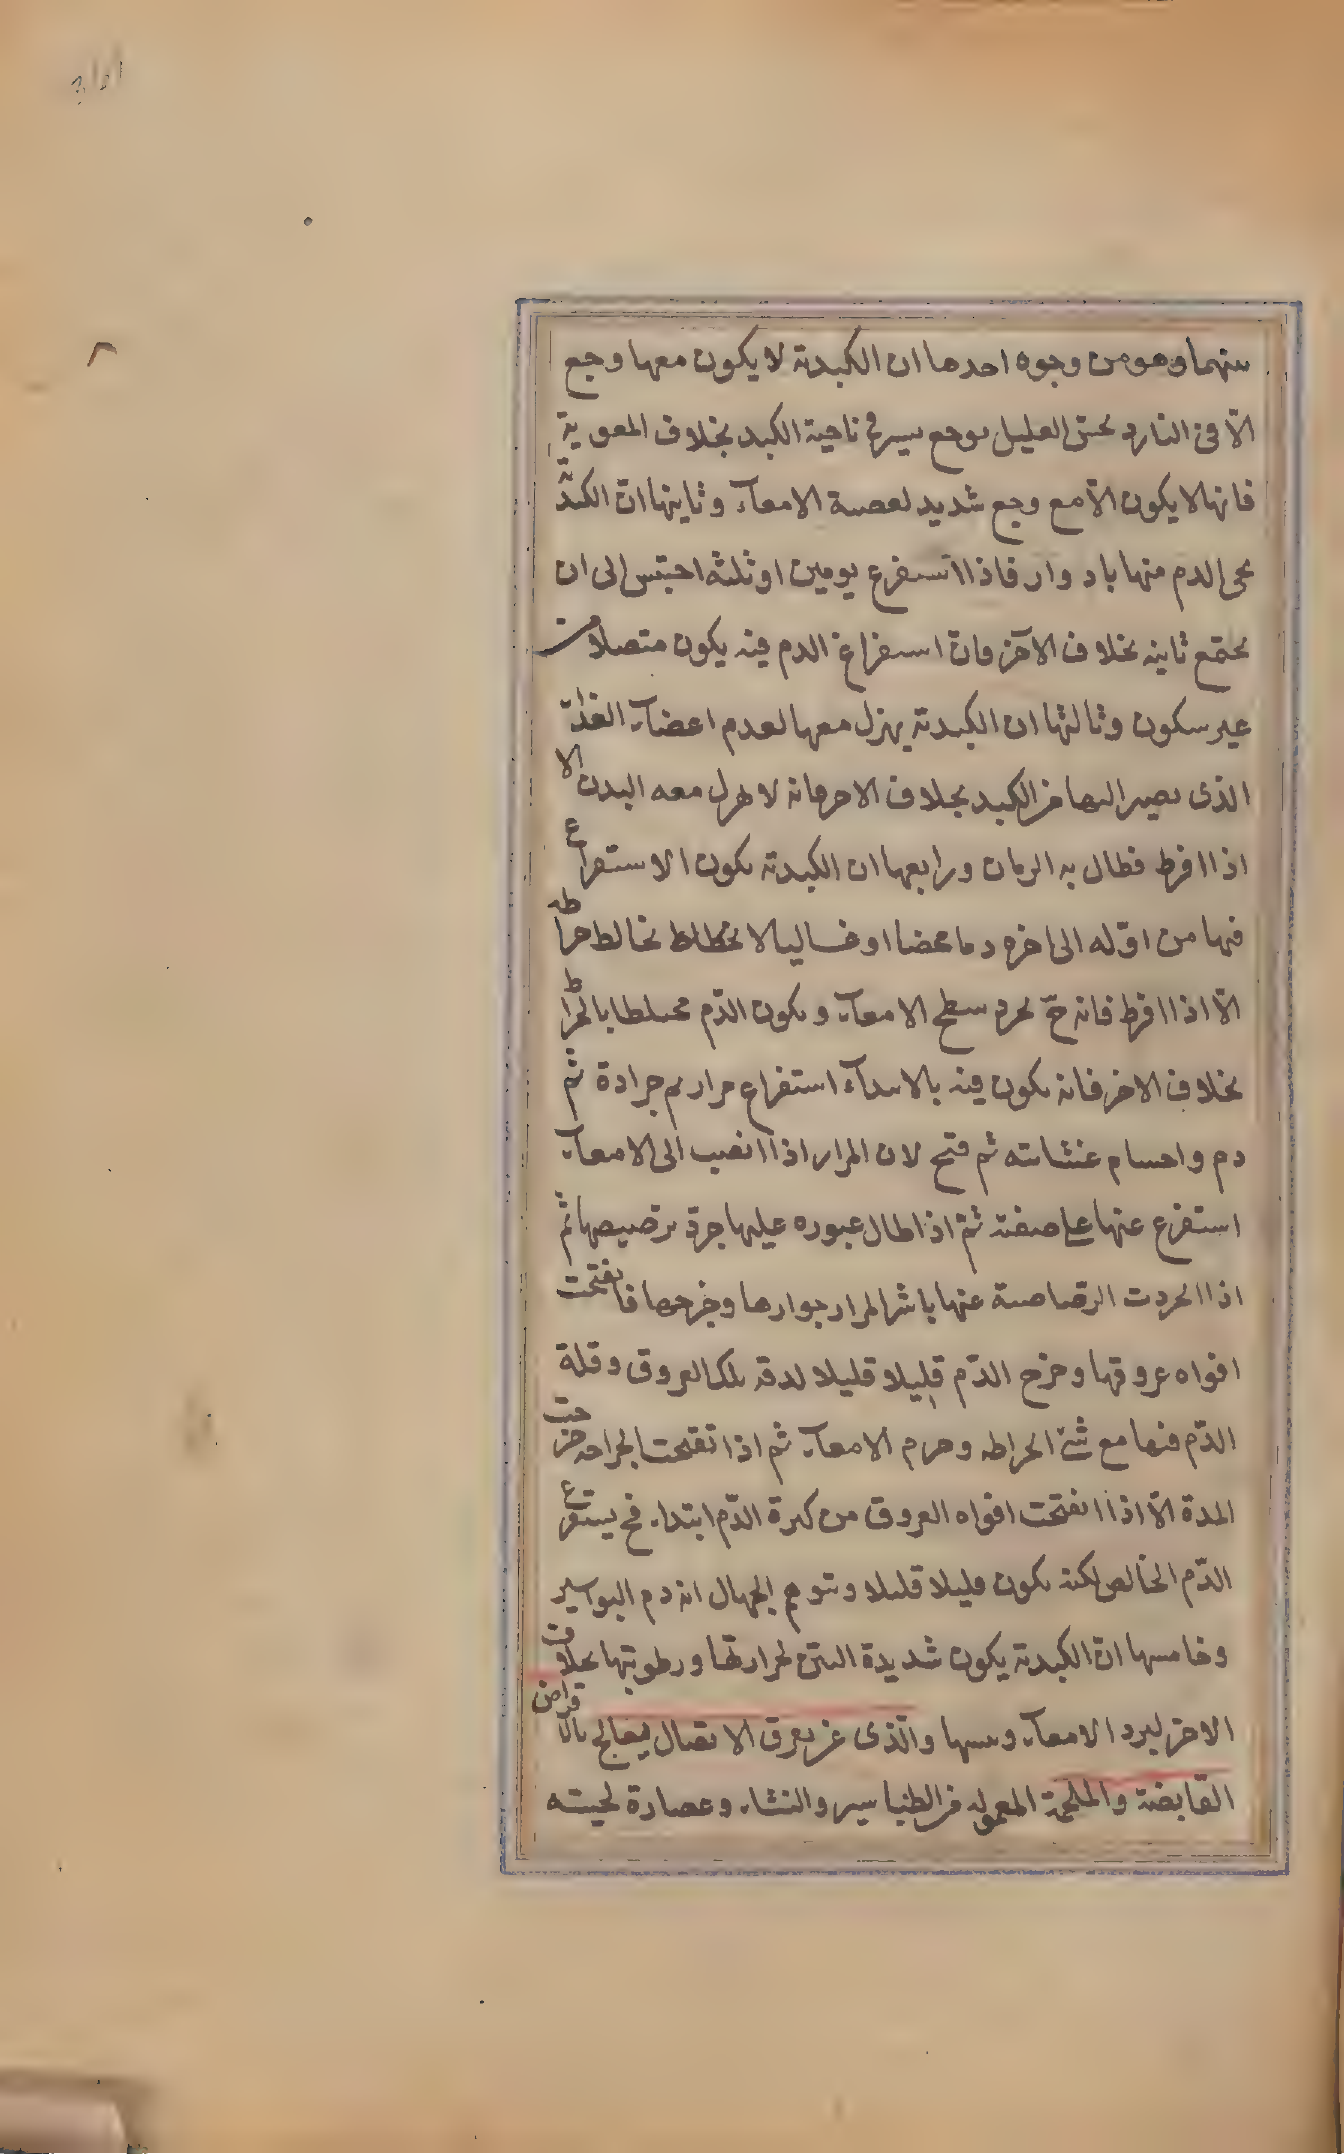 بينهما وهو من وجوه احدها ان الكبدية لا يكون معها وجع
الّا فى النادر يحسّ العليل بوجع يسير فى ناحية الكبد بخلاف المعوية
فانها لا يكون الّا مع وجع شديد لعصبية الامعآء وثاينها انّ الكبديّة
يجى الدم منها بادوار فاذا استفرغ يومين او ثلثه احتبس الى ان
يجتمع ثاينه بخلاف الآخر فانّ استفراغ الدم فيه يكون متصلا من
غير سكون وثالثها ان الكبدية يهزل معها لعدم اعضآء الغذاء
الذى يصير اليها من الكبد بخلاف الاخر فانه لا يهزل معه البدن الا
اذا افرط فطال به الزمان ورابعها ان الكبدية يكون الاستفراغ
فيها من اوّله الى اخره دما محضا او غساليا لا يخالط خراطه
الّا اذا افرط فانه حّ يجرد سطح الامعآء ويكون الدّم مختلطا بالخراطه
بخلاف الاخر فانه يكون فيه بالابتدآء استفراغ مرار ثم جرادة ثم
دم واجسام غشائيه ثم قيح لان المرار اذا انصب الى الامعآء
استفرغ عنها على صفته ثمّ اذا طال عبوره عليها جرد ترصيصها ثم
اذا انجردت الرصاصية عنها باشر المرار جوارها وخرجها فانفتحت
افواه عروقها وخرج الدّم قليلا قليلا لدقه تلك العروق وقلة
الدّم فيها مع شئ الخراطه وجرم الامعآء ثم اذا تقيحت الجراحه خرجت
المدة الّا اذا انفتحت افواه العروق من كثرة الدّم ابتداء فح يستفرغ
الدّم الخالص لكنه يكون قليلا قليلا ويتوهم الجهال انه دم البواسير
وخامسها انّ الكبدية يكون شديدة النتن لحرارتها ورطوبتها بخلاف
الاخر لبرد الامعآء ويبسها والّذى عن تفرق الاتصال يعالج بالاقراص
القابضة والملحمة المعموله من الطباسير والنشاء وعصارة لحيته